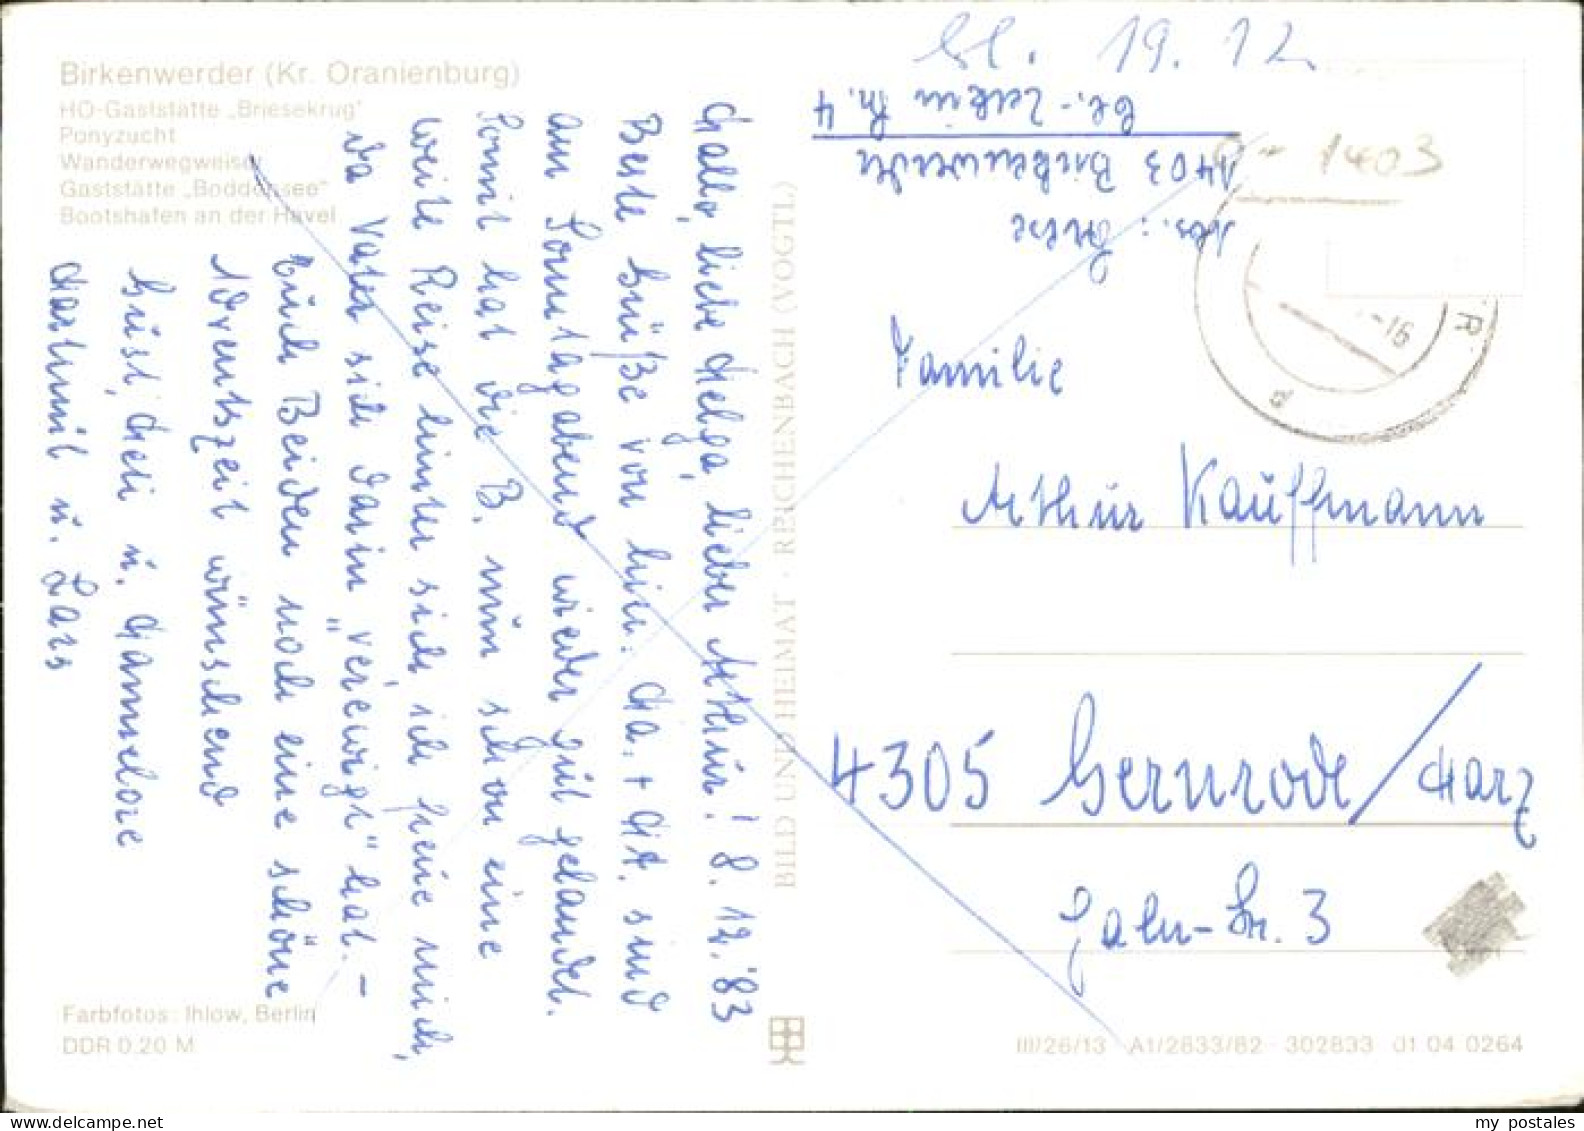 Birkenwerder (Kr. Oranienburg)
HO-Gaststätte „Briesekrug"
Ponyzucht
Wanderwegweiser
Gaststätte „Boddensee"
Bootshafen an der Havel
Hallo, liebe Helga, lieber Arthur! 8. 12. '83
Beste Grüße von hier. Ha. + Ha. sind
am Sonntagabend wieder gut gelandet.
Somit hat die B. nun schon eine
weite Reise hinter sich, ich freue mich,
da Vater sich darin „verewigt" hat. –
Euch Beiden noch eine schöne
Adventszeit wünschend
Grüßt, Heli u. Hannelore
Hartmut u. Lars
Farbfotos: Ihlow, Berlin
DDR 0,20 M
BILD UND HEIMAT · REICHENBACH (VOGTL)
19. 12
Abs.:
1403 Birkenwerder
Cl.-Zetkin Str. 4
1403
-16
R
d
Familie
Arthur Kauffmann
4305 Gernrode/Harz
Str. 3
III/26/13 A1/2833/82 302833 01 04 0264
my postales